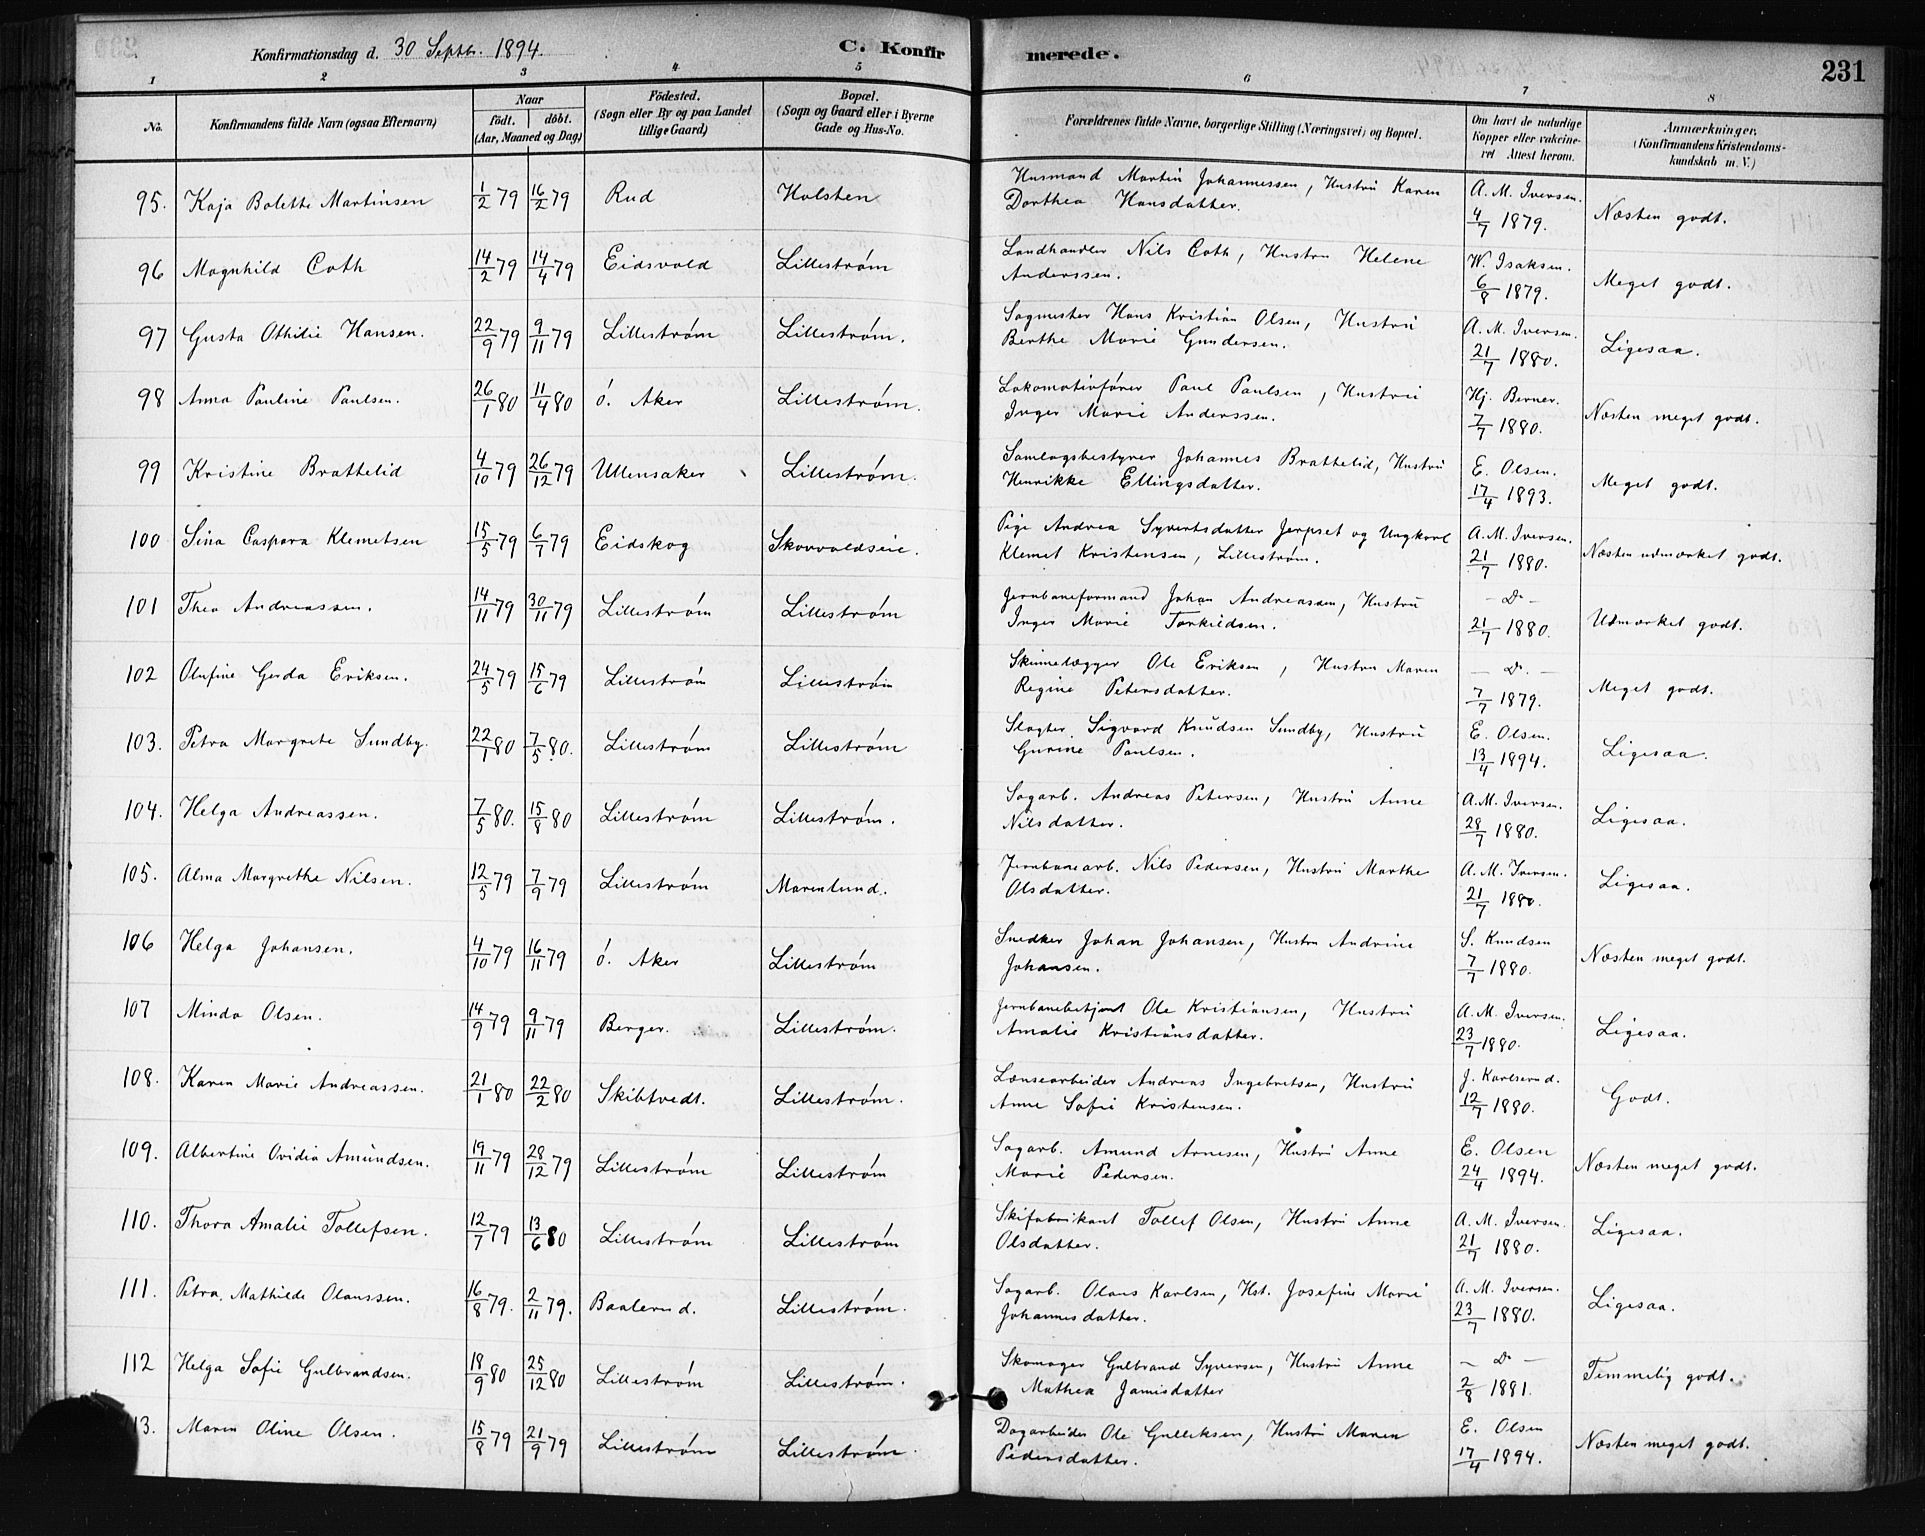 Konfirmationsdag d. 30 Septbr. 1894.
C. Konfirmerede.
231
1 2 3 4 5 6 7 8
No.
Konfirmandens fulde Navn (ogsaa Efternavn)
Naar
födt. döbt.
(Aar, Maaned og Dag)
Födested.
(Sogn eller By og paa Landet
tillige Gaard)
Bopæl.
(Sogn og Gaard eller i Byerne
Gade og Hus-No.
Forældrenes fulde Navne, borgerlige Stilling (Næringsvei) og Bopæl.
Om havt de naturlige
Kopper eller vakcine-
ret Attest herom.
Anmærkninger.
(Konfirmandens Kristendoms-
kundskab m. V.)
95. Kaja Bolette Martinsen 1/2 79 16/2 79 Rud Holsten Husmand Martin Johannessen, Hustru Karen
Dorthea Hansdatter. A. M. Iversen. 4/7 1879. Næsten godt.
96 Magnhild Coth 14/2 79 14/4 79 Eidsvold Lillestrøm Landhandler Nils Coth, Hustru Helene
Anderssen. W. Isaksen. 6/8 1879. Meget godt.
97 Gusta Othilie Hansen. 22/9 79 9/11 79 Lillestrøm Lillestrøm. Sagmester Hans Kristian Olsen, Hustru
Berthe Marie Gundersen. A. M. Iversen. 21/7 1880. Ligesaa.
98 Anna Pauline Paulsen. 26/1 80 11/4 80 Ö. Aker Lillestrøm. Lokomotivfører Paul Paulsen, Hustru
Inger Marie Anderssen. Hj. Berner. 7/7 1880. Næsten meget godt.
99 Kristine Brattelid 4/10 79 26/12 79 Ullensaker Lillestrøm. Samlagsbestyrer Johannes Brattelid, Hustru
Henrikke Ellingsdatter. E. Olsen. 17/4 1893. Meget godt.
100 Sina Caspara Klemetsen 15/5 79 6/7 79 Eidskog Skovvoldseie. Pige Andrea Syvertsdatter Jerpset og Ungkarl
Klemet Kristensen, Lillestrøm. A. M. Iversen. 21/7 1880. Næsten udmærket godt.
101 Thea Andreassen. 14/11 79 30/11 79 Lillestrøm Lillestrøm Jernbaneformand Johan Andreassen, Hustru
Inger Marie Torkildsen. - Do - 21/7 1880. Udmærket godt.
102 Olufine Gerda Eriksen. 24/5 79 15/6 79 Lillestrøm Lillestrøm Skinnelægger Ole Eriksen, Hustru Maren
Regine Petersdatter. - Do. - 7/7 1879. Meget godt.
103. Petra Margrete Sundby. 22/1 80 7/5 80. Lillestrøm Lillestrøm Slagter Sigvard Knudsen Sundby, Hustru
Gurine Paulsen. E. Olsen. 13/4 1894. Ligesaa.
104. Helga Andreassen. 7/5 80. 15/8 80 Lillestrøm Lillestrøm. Sagarb. Andreas Petersen, Hustru Anne
Nilsdatter. A. M. Iversen. 28/7 1880. Ligesaa.
105. Alma Margrethe Nilsen. 12/5 79 7/9 79 Lillestrøm Marenlund. Jernbanearb. Nils Pedersen, Hustru Marthe
Olsdatter. A. M. Iversen. 21/7 1880. Ligesaa.
106 Helga Johansen. 4/10 79 16/11 79 Ö. Aker Lillestrøm Snedker Johan Johansen, Hustru Andrine
Johansen. S. Knudsen 7/7 1880. Næsten meget godt.
107 Minda Olsen. 14/9 79 9/11 79 Berger. Lillestrøm. Jernbanebetjent Ole Kristiansen, Hustru
Amalie Kristiansdatter. A. M. Iversen. 23/7 1880. Ligesaa.
108. Karen Marie Andreassen. 21/1 80 22/2 80 Skibtvedt. Lillestrøm. Lænsearbeider Andreas Ingebretsen, Hustru
Anne Sofie Kristensen. J. Karlsrud. 12/7 1880. Godt.
109. Albertine Ovidia Amundsen. 19/11 79 28/12 79 Lillestrøm Lillestrøm Sagarb. Amund Arnesen, Hustru Anne
Marie Pedersen. E. Olsen 24/4 1894. Næsten meget godt.
110. Thora Amalie Tollefsen. 12/7 79 13/6 80 Lillestrøm Lillestrøm Skifabrikant Tollef Olsen, Hustru Anne
Olsdatter. A. M. Iversen. 21/7 1880. Ligesaa.
111. Petra Mathilde Olaussen. 16/8 79. 2/11 79. Baalerud. Lillestrøm. Sagarb. Olaus Karlsen, Hst. Josefine Marie
Johannesdatter. A. M. Iversen. 23/7 1880. Ligesaa.
112 Helga Sofie Gulbrandsen. 18/9 80 25/12 80 Lillestrøm Lillestrøm. Skomager Gulbrand Syversen, Hustru Anne
Mathea Jamisdatter - Do - 2/8 1881. Temmelig godt.
13. Maren Oline Olsen. 15/8 79 21/9 79 Lillestrøm Lillestrøm. Dagarbeider Ole Gulliksen, Hustru Maren
Pedersdatter. E. Olsen 17/4 1894. Næsten meget godt.